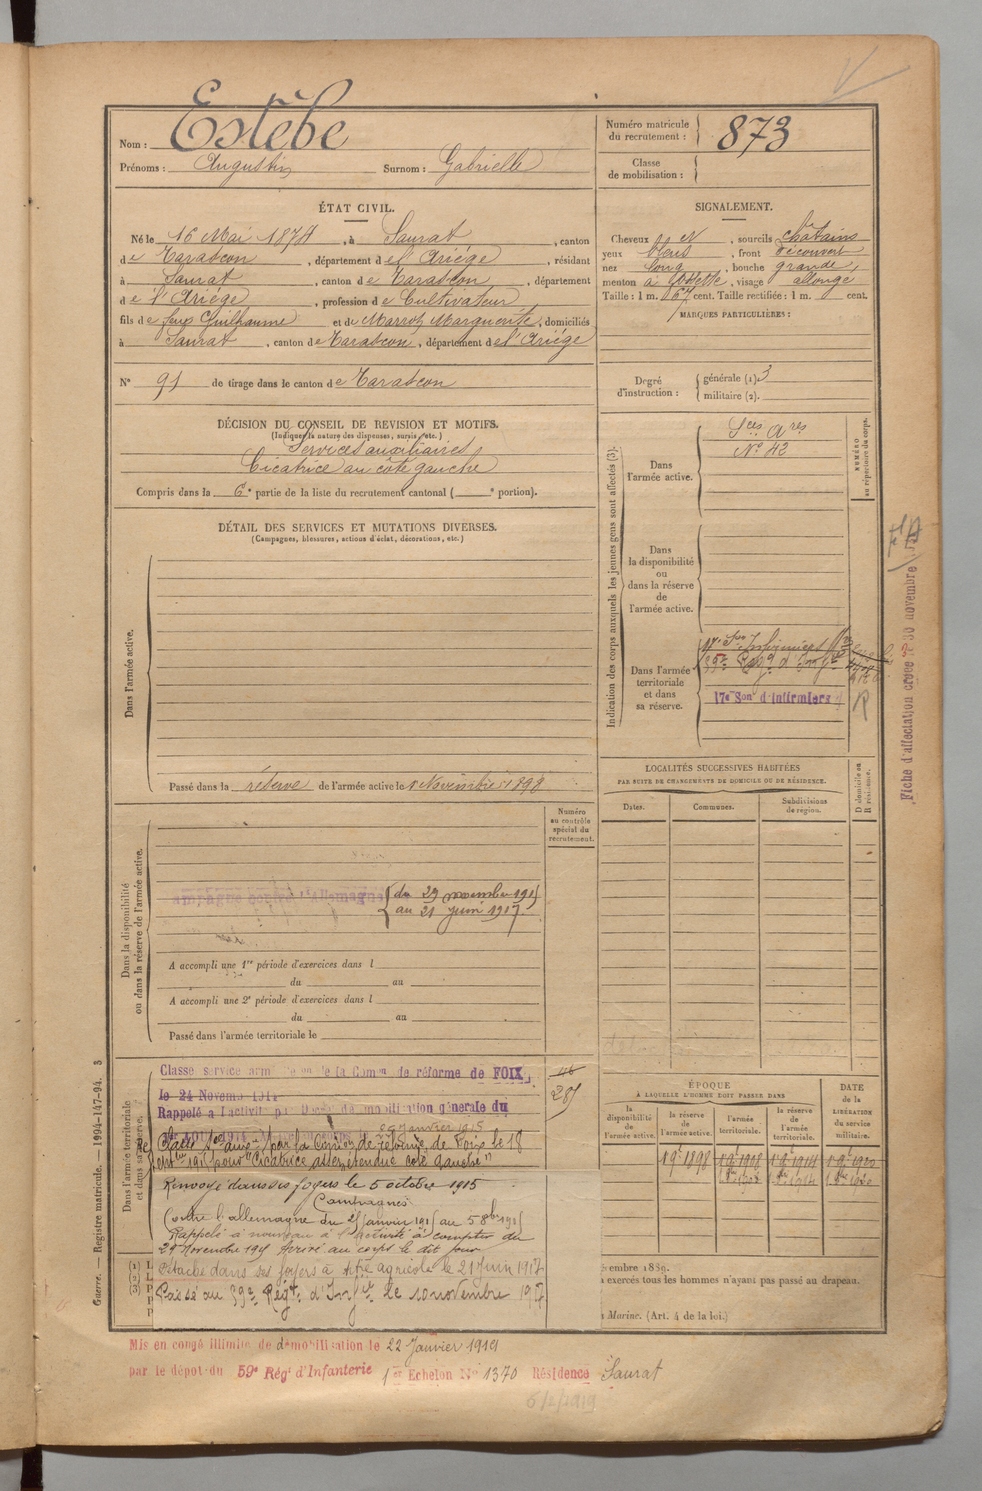 Nom : Estèbe
Prénoms : Augustin Surnom : Gabrielle
Numéro matricule du recrutement : 873
Classe de mobilisation :
ÉTAT CIVIL.
Né le 16 Mai 1874, à Saurat, canton
de Tarascon, département de l'Ariége, résidant
à Saurat, canton de Tarascon, département
de l'Ariége, profession de Cultivateur,
fils de feu Guilhaume et de Marrot Marguerite, domiciliés
à Saurat, canton de Tarascon, département de l'Ariége
N° 91 de tirage dans le canton de Tarascon
SIGNALEMENT.
Cheveux et sourcils châtains
yeux bleus, front découvert
nez long, bouche grande,
menton à fossette, visage allongé
Taille : 1 m. 67 cent. Taille rectifiée : 1 m. cent.
MARQUES PARTICULIÈRES :
Degré d'instruction : générale (1). 3
militaire (2).
DÉCISION DU CONSEIL DE REVISION ET MOTIFS.
(Indiquer la nature des dispenses, sursis, etc.)
Services auxiliaires
Cicatrice au côté gauche
Compris dans la 6e partie de la liste du recrutement cantonal ( e portion).
DÉTAIL DES SERVICES ET MUTATIONS DIVERSES.
(Campagnes, blessures, actions d'éclat, décorations, etc.)
Dans l'armée active.
Passé dans la réserve de l'armée active le 1 Novembre 1898
Indication des corps auxquels les jeunes gens sont affectés (3).
NUMÉRO au répertoire du corps.
Dans l'armée active.
Sces Ares
N° 42
Dans la disponibilité ou dans la réserve de l'armée active.
Dans l'armée territoriale et dans sa réserve.
17e Son Infirmiers
59e Régt d'Infie
17e Son d'Infirmiers
R
Fiche d'affectation créée le 30 novembre
LOCALITÉS SUCCESSIVES HABITÉES
PAR SUITE DE CHANGEMENTS DE DOMICILE OU DE RÉSIDENCE.
Dates. Communes. Subdivisions de région. D domicile ou R résidence.
Dans la disponibilité ou dans la réserve de l'armée active.
Numéro au contrôle spécial du recrutement.
ampagne contre l'Allemagne du 29 novembre 1915
au 21 juin 1917.
A accompli une 1re période d'exercices dans l
du au
A accompli une 2e période d'exercices dans l
du au
Passé dans l'armée territoriale le
Dans l'armée territoriale et dans sa réserve.
Classé service armé de la Comm de réforme de FOIX,
le 24 Novemb 1914
Rappelé à l'activité par Décret de mobilisation générale du
1er août 1914 29 janvier 1915
Classé sce auxre par la Comon de réforme de Foix le 18
1915 pour "Cicatrice assez étendue côté gauche"
Renvoyé dans ses foyers le 5 octobre 1915
Campagnes
Contre l'allemagne du 25 janvier 1915 au 5 8bre 1915
Rappelé à nouveau à l'activité à compter du
29 Novembre 1915 Arrivé au corps le dit jour
Détaché dans ses foyers à titre agricole le 21 Juin 1917
Passé au 59e Régt d'Infie le 10 novembre 1917
285
ÉPOQUE
À LAQUELLE L'HOMME DOIT PASSER DANS
la disponibilité de l'armée active. la réserve de l'armée active. l'armée territoriale. la réserve de l'armée territoriale.
DATE de la LIBÉRATION du service militaire.
1 9e 1898 1 9e 1908 1 9e 1914 1 9e 1920
embre 1889.
à exercés tous les hommes n'ayant pas passé au drapeau.
Marine. (Art. 4 de la loi.)
Guerre. — Registre matricule. — 1994-147-94. 3
Mis en congé illimité de démobilisation le 22 Janvier 1919
par le dépôt du 59e Régt d'Infanterie 1er Échelon No 1370 Résidence Saurat
6/2/1919